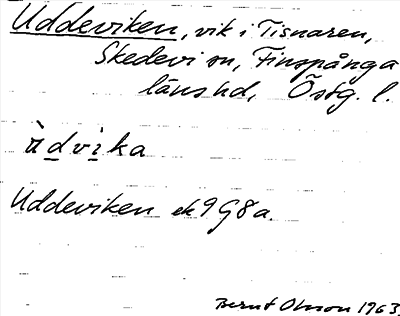 Uddeviken, vik i Tisnaren,
Skedevi sn, Finspånga
läns hd, Östg. l.
ùdvika
Uddeviken ek 9G8a.
Bernt Olsson 1963.